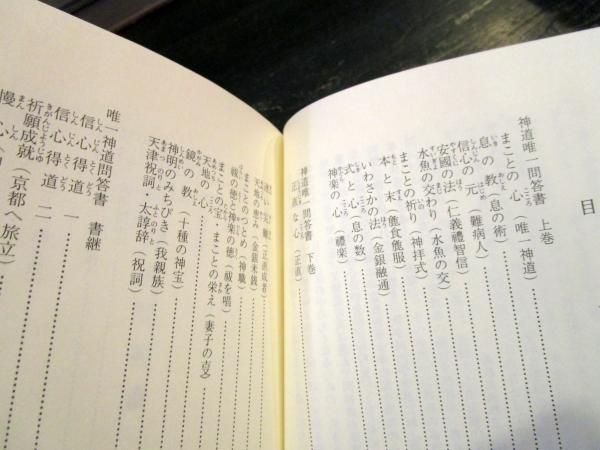 目
神道唯一問答書 上巻
まことの心（唯一神道）
息の教（息の術）
信心の元（難病人）
安國の法（仁義禮智信）
水魚の交わり（水魚の交）
まことの祈り（神拝式）
本と末（能食能服）
いわさかの法（金銀融通）
式と心（息の数）
神楽の心（禮楽）
神道唯一問答書 下巻
正直な心（正直）
（正直成者）
天地の恵み（金銀米銭）
まことのつとめ（神職）
祓の徳と神楽の徳（祓を唱）
まことの宝・まことの栄え（妻子の㐂）
天地の心
鏡の教（十種の神宝）
神明のみちびき（我親族）
天津祝詞・太諄辞（祝詞）
唯一神道問答書 書継
信心得道 一
信心得道 二
祈願成就（京都へ旅立）
慢心